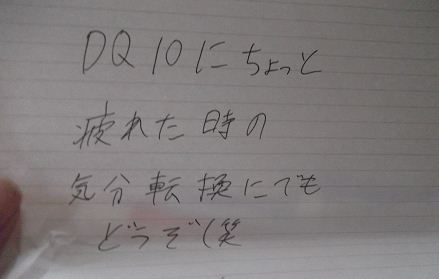 DQ10にちょっと
疲れた時の
気分転換にでも
どうぞ(笑